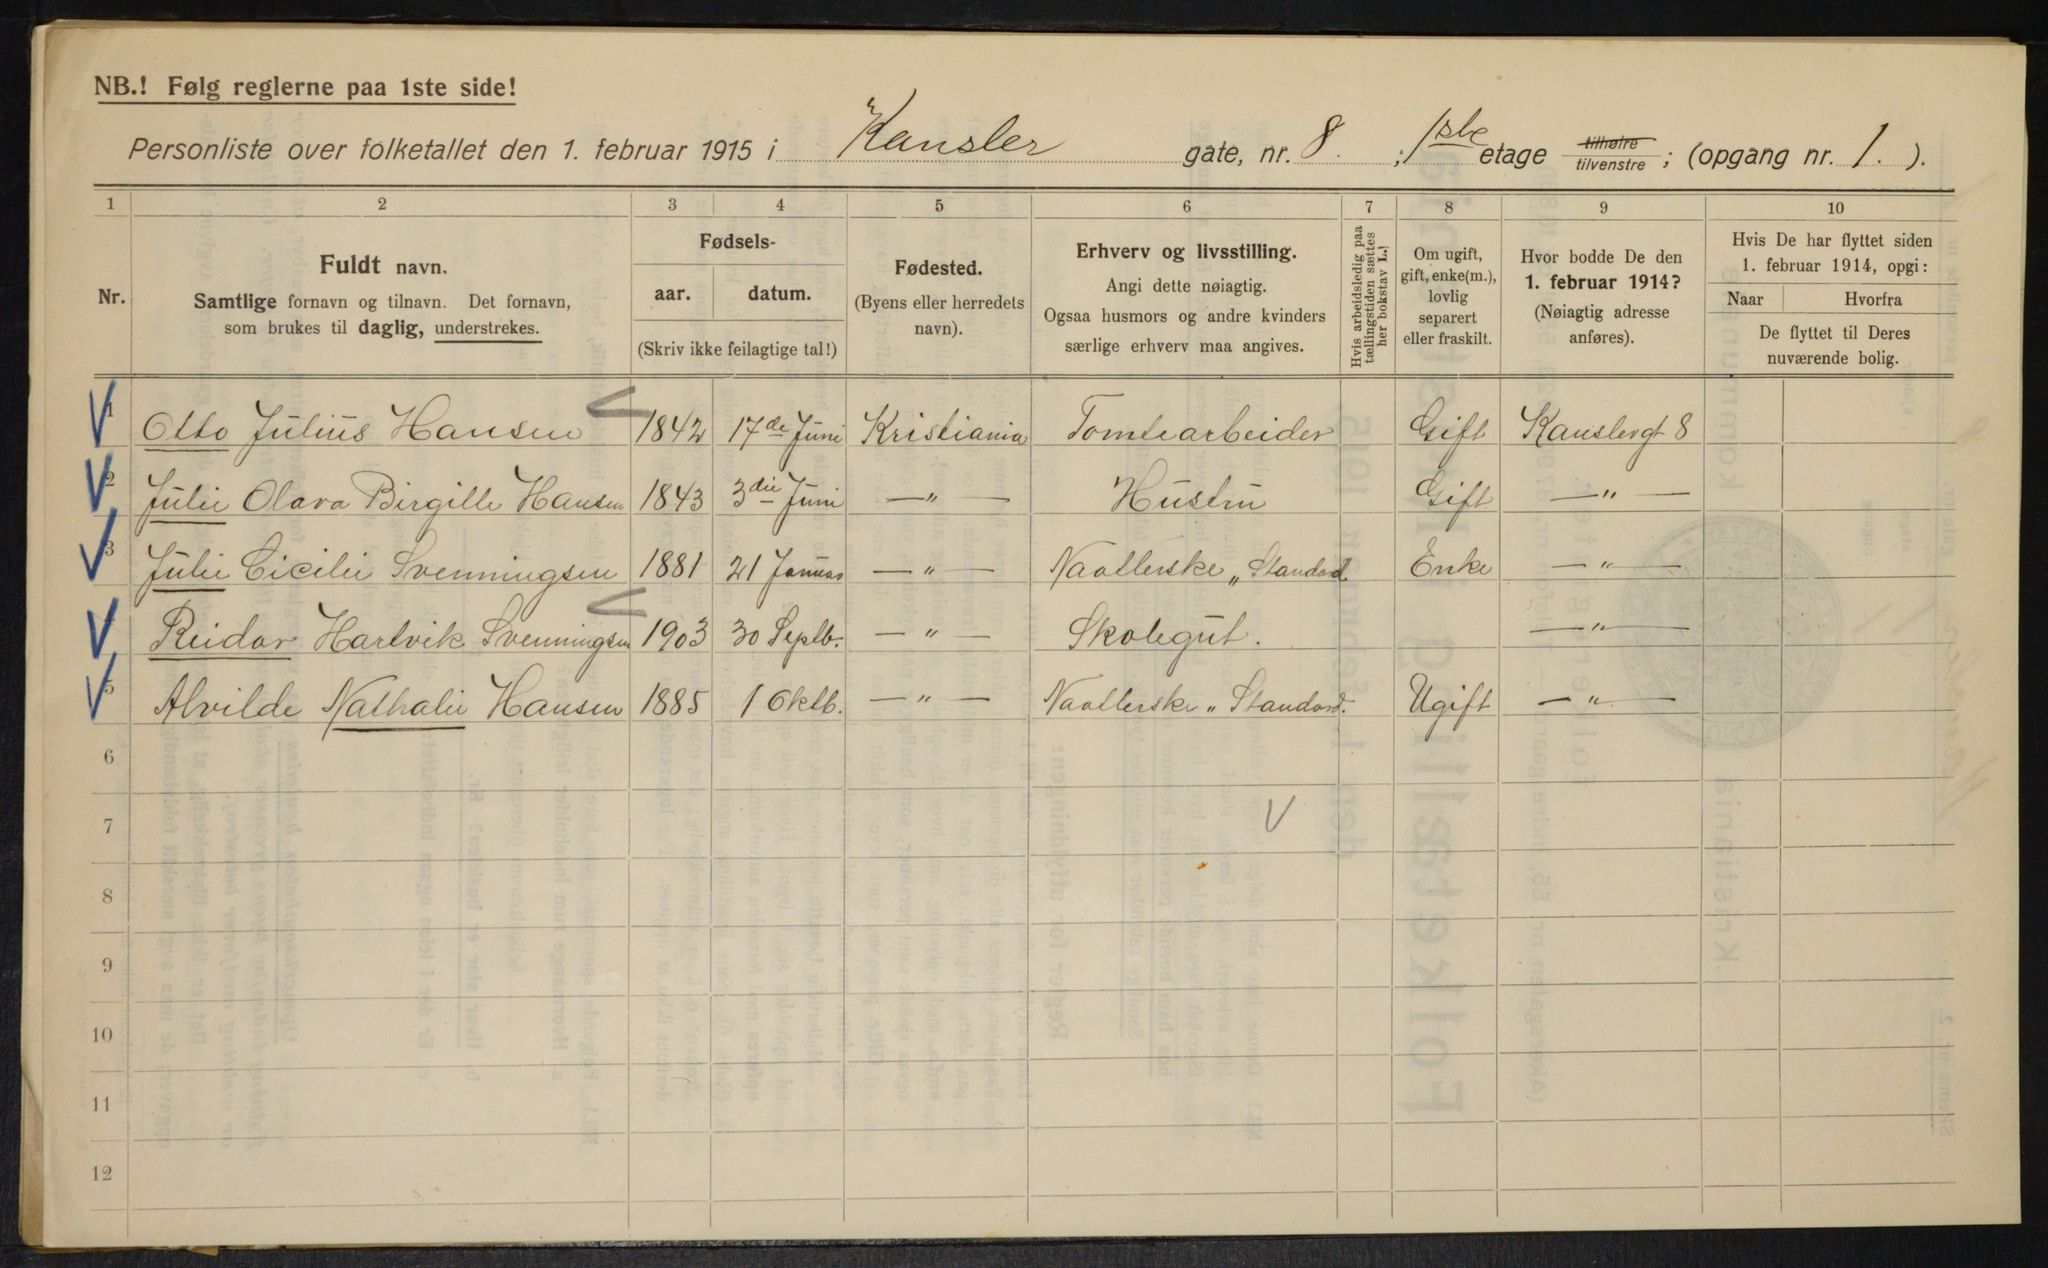 NB.! Følg reglerne paa 1ste side!
Personliste over folketallet den 1. februar 1915 i Kansler gate, nr. 8. ; 1ste etage tilhøire tilvenstre ; (opgang nr. 1. ).
1 2 3 4 5 6 7 8 9 10
Nr.
Fuldt navn.
Samtlige fornavn og tilnavn. Det fornavn,
som brukes til daglig, understrekes.
Fødsels-
aar. datum.
(Skriv ikke feilagtige tal!)
Fødested.
(Byens eller herredets
navn).
Erhverv og livsstilling.
Angi dette nøiagtig.
Ogsaa husmors og andre kvinders
særlige erhverv maa angives.
Hvis arbeidsledig paa
tællingstiden sættes
her bokstav L.!
Om ugift,
gift, enke(m.),
lovlig
separert
eller fraskilt.
Hvor bodde De den
1. februar 1914?
(Nøiagtig adresse
anføres).
Hvis De har flyttet siden
1. februar 1914, opgi:
Naar Hvorfra
De flyttet til Deres
nuværende bolig.
1 Otto Julius Hansen 1842 17de Juni Kristiania Tomtearbeider Gift Kanslergt 8
2 Julie Olava Birgitte Hansen 1843 3die Juni — " — Hustru Gift — " —
3 Julie Cicilie Svenningsen 1881 21 Januar — " — Naatlerske „Standard Enke — " —
Reidar Hartvik Svenningsen 1903 30 Septb. — " — Skolegut. — " —
5 Alvilde Nathalie Hansen 1885 1 Oktb. — " — Naatlerske „Standard. Ugift — " —
6
7
8
9
10
11
12